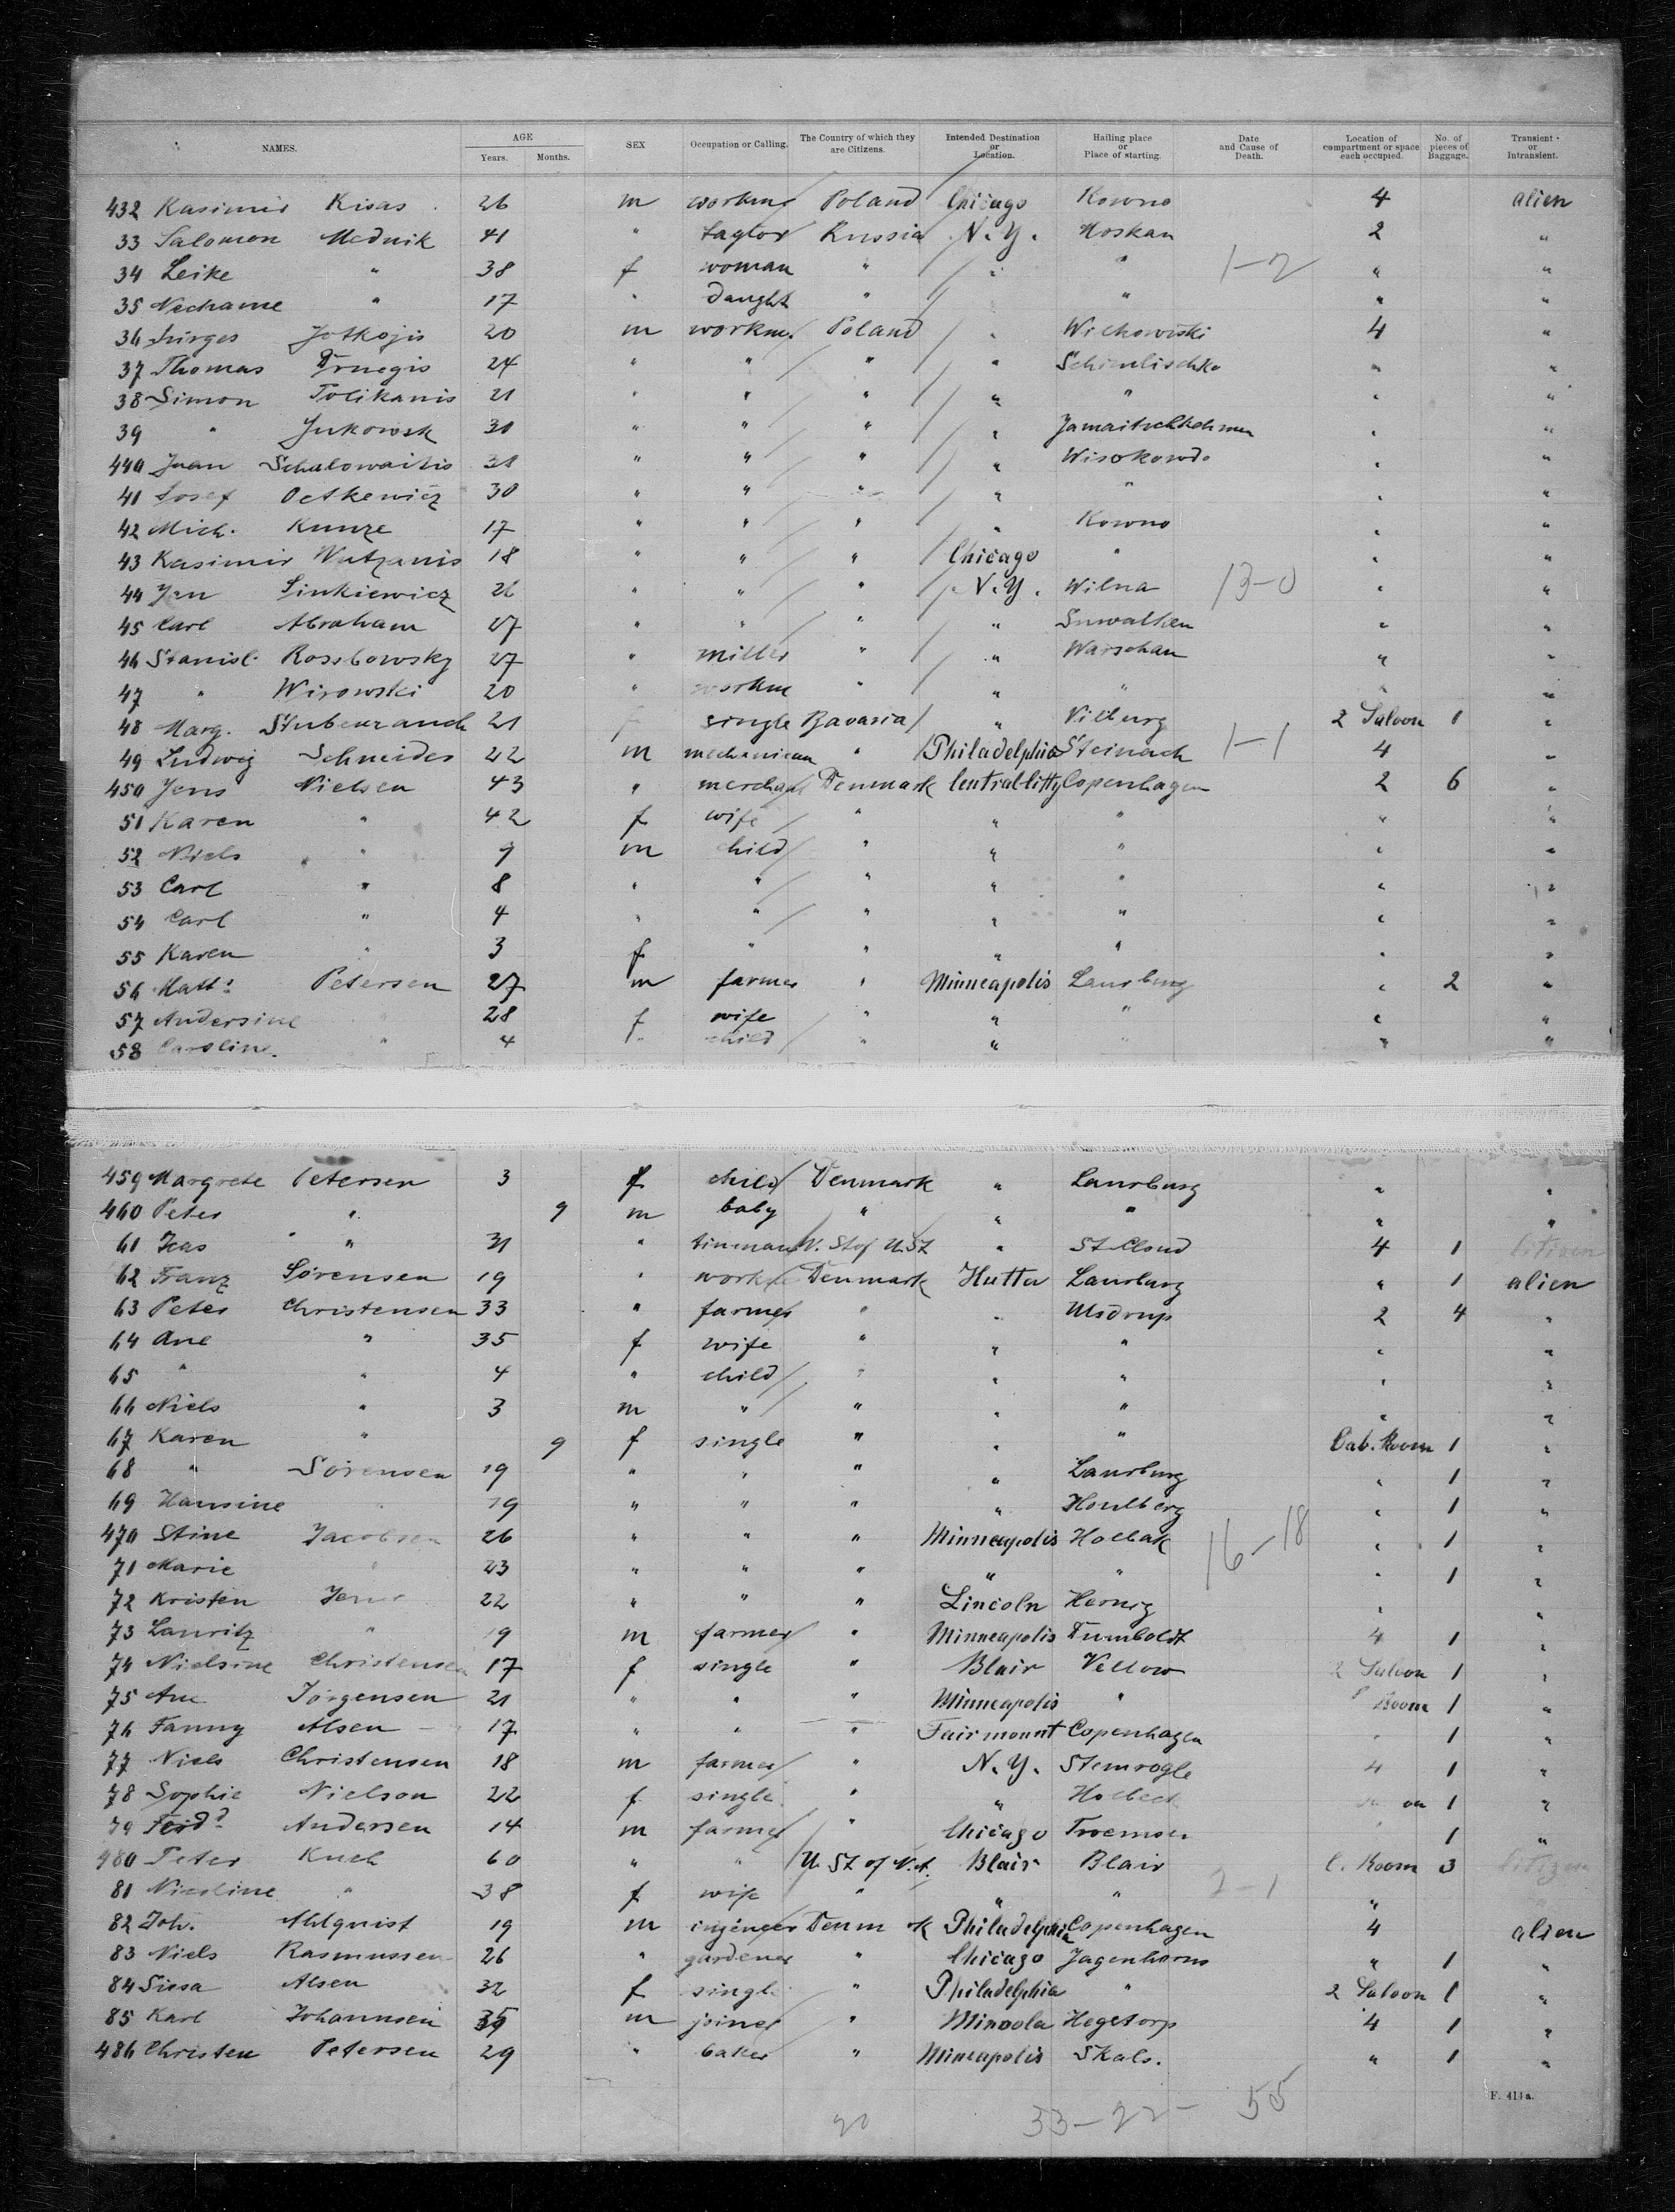 NAMES. AGE Years. Months. SEX Occupation or Calling. The Country of which they are Citizens. Intended Destination or Location. Hailing place or Place of starting. Date and Cause of Death. Location of compartment or space each occupied. No. of pieces of Baggage. Transient or Intransient.
432 Kasimir Kisas 26 m workm Poland Chicago Kowno 4 alien
33 Salomon Mednik 41 " taylor Russia N.Y. 2 "
34 Leike " 38 f woman " " " 1-2 " "
35 Nechame " 17 " daught " " " "
36 Jotkojis 20 m workm. Poland " 4 "
37 Thomas 24 " " " " " "
38 Simon Tolikanis 21 " " " " " " "
39 " Jukowsk 30 " " " " " "
440 Schalowaitis " " " " Wisokowdo " "
41 Josef Octkewicz 30 " " " " " " "
42 Mich. Kunze 17 " " " " Kowno " "
43 Kasimir Watzanis 18 " " " Chicago " " "
44 Jan Sinkiewicz 26 " " " N.Y. Wilna 13-0 " "
45 Carl Abraham 27 " " " " Suwalken " "
46 Stanisl. Rossbowsky 27 " miller " " Warschau " "
47 " Wirowski 20 " workm " " " " "
48 Marg. Stubenrauch 21 f single Bavaria " Vilburg 2 Saloon 1 "
49 Ludwig Schneider 22 m mechanican " Philadelphia Steinach 1-1 4 "
450 Jens Nielsen 43 " merchant Denmark Central-Citty Copenhagen 2 6 "
51 Karen " 42 f wife " " " " "
52 Niels " 9 m child " " " " "
53 Carl " 8 " " " " " " "
54 Carl " 4 " " " " " " "
55 Karen " 3 f " " " " " "
56 Matts Petersen 27 m farmer " Minneapolis Laurburg " 2 "
57 Andersine " 28 f wife " " " " "
58 Caroline. " 4 f child " " " " "
459 Margrete Petersen 3 f child Denmark " Laurburg " "
460 Peter " 9 m baby " " " " "
61 " 31 " tinman " St Cloud 4 1 citizen
62 Franz Sörensen 19 " work Denmark Hutta Laurburg " 1 alien
63 Peter Christensen 33 " farmer " " Ulsdrup 2 4 "
64 Ane " 35 f wife " " " " "
65 " " 4 " child " " " " "
66 Niels " 3 m " " " " " "
67 Karen " 9 f single " " " Cab. Room 1 "
68 " Sörensen 19 " " " " Laurburg " 1 "
69 Hansine " 19 " " " " Houlberg " 1 "
470 Stine Jacobsen 26 " " " Minneapolis Holbak 16-18 " 1 "
71 Marie " 23 " " " " " " 1 "
72 Kristen 22 " " " Lincoln Hernig " "
73 Lauritz " 19 m farmer " Minneapolis Dumboldt 4 1 "
74 Nielsine Christensen 17 f single " Blair Vellow 2 Saloon 1 "
75 Ane Jörgensen 21 " " " Minneapolis " Room 1 "
76 Fanny Alsen 17 " " " Fairmount Copenhagen " 1 "
77 Niels Christensen 18 m farmer " N.Y. Stemrogle 4 1 "
78 Sophie Nielson 22 f single " " Holbeck 1 "
79 Ferdd Andersen 14 m farmer " Chicago Troemsen 1 "
480 Peter Kuch 60 " " U. St of N.A. Blair Blair C. Room 3 citizen
81 Nicoline " 38 f wife " " " 2-1 "
82 Joh. Ahlquist 19 m ingineer Denmark Philadelphia Copenhagen 4 alien
83 Niels Rasmussen 26 " gardener " Chicago Jagenhorns " 1 "
84 Sissa Alsen 32 f single " Philadelphia " 2 Saloon 1 "
85 Karl Johannsen 35 m joiner " Minoola Hegetorp 4 1 "
486 Christen Petersen 29 " baker " Mineapolis Skals. " 1 "
20 33-22- 55
F. 411a.